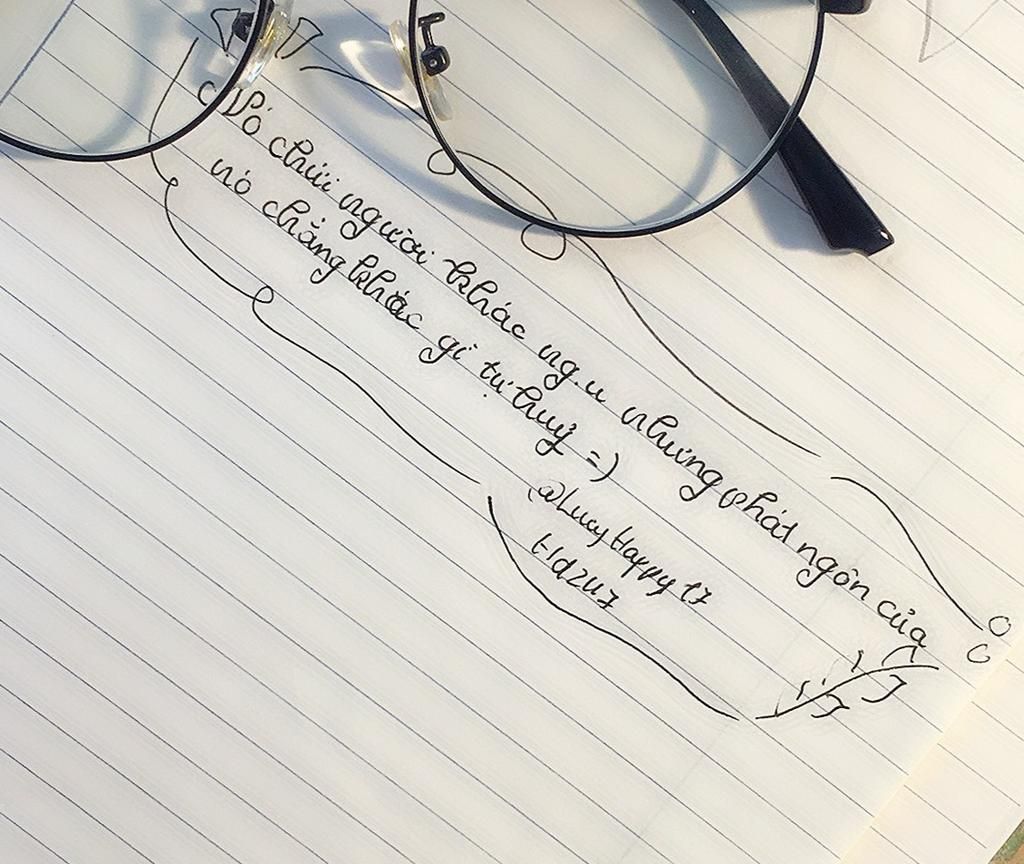 Nó chửi người khác ngu nhưng phát ngôn của
nó chẳng khác gì tự huỷ =)
@LucyHappyt7
t1d2u7